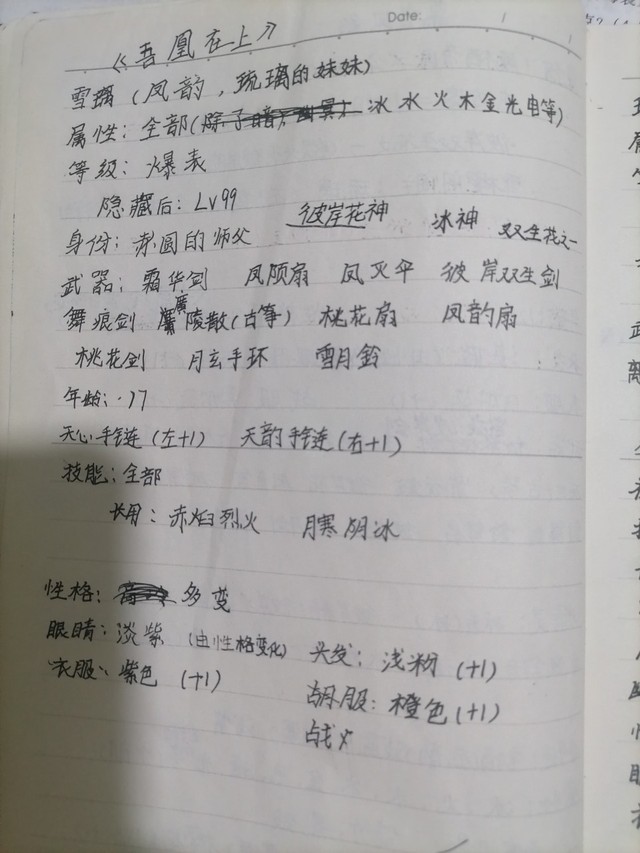 Date: / /
《吾凰在上》
雪璃（凤韵，琉璃的妹妹）
属性：全部（除了暗，幽冥） 冰水火木金光电等）
等级：爆表
隐藏后：Lv99 彼岸花神 冰神 双生花之一
身份：赤圆的师父
武器：霜华剑 凤颀扇 凤灭伞 彼岸双生剑
舞痕剑 廣陵散（古筝） 桃花扇 凤韵扇
桃花剑 月玄手环 雪月鈴
年龄：17
天心手链（左+1） 天韵手链（右+1）
技能：全部
长用：赤焰烈火 月寒阴冰
性格： 多变
眼睛：淡紫（由性格变化） 头发：浅粉（+1）
衣服：紫色（+1） 胡服：橙色（+1）
战火